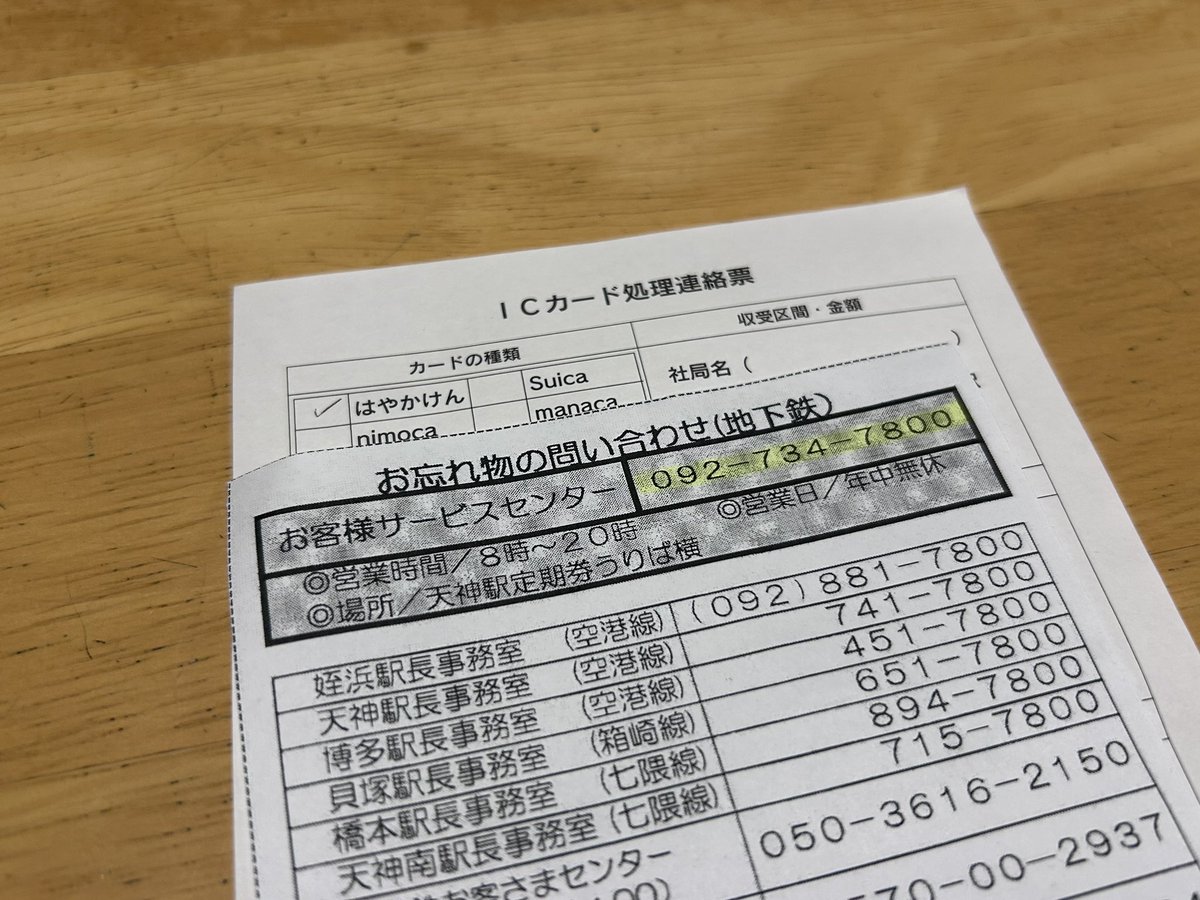 ICカード処理連絡票
カードの種類 収受区間・金額
✓ はやかけん Suica 社局名( )
nimoca manaca
お忘れ物の問い合わせ(地下鉄)
お客様サービスセンター 092-734-7800
◎営業時間/8時~20時 ◎営業日/年中無休
◎場所/天神駅定期券うりば横
姪浜駅長事務室 (空港線) (092)881-7800
天神駅長事務室 (空港線) 741-7800
博多駅長事務室 (空港線) 451-7800
貝塚駅長事務室 (箱崎線) 651-7800
橋本駅長事務室 (七隈線) 894-7800
天神南駅長事務室 (七隈線) 715-7800
お客さまセンター 050-3616-2150
570-00-2937